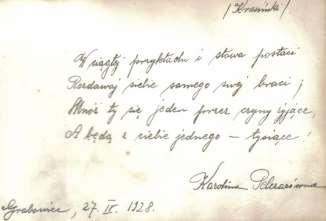 /Krasiński/
W ciągłej przykładu i słowa postaci
Rozdawaj siebie samego swej braci;
Mnóż ty się jeden przez czyny żyjące,
A będą z ciebie jednego – tysiące!
Karolina
Grabowiec, 27. IV. 1928.